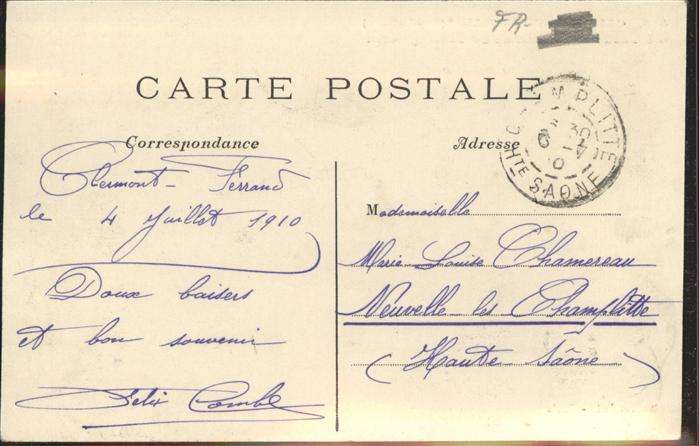 FR.
CARTE POSTALE
Correspondance
Clermont-Ferrand
le 4 Juillet 1910
Doux baisers
et bon souvenir
Felix Combe
Adresse
Mademoiselle
Marie Louise Chamereau
Neuvelle les Champlitte
(Haute Saône)
CHAMPLITTE
HTE SAONE